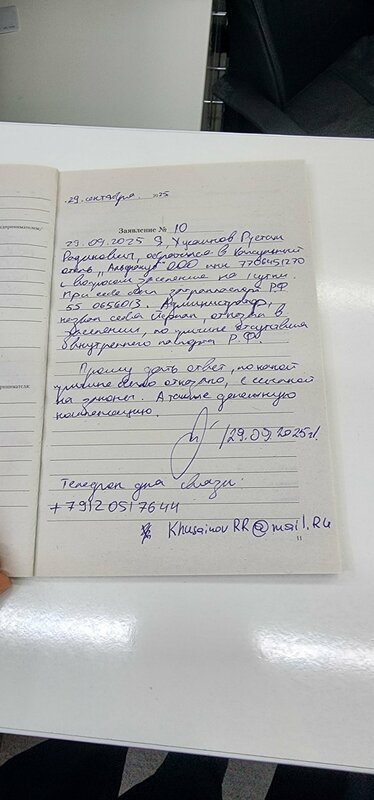 29. сентября 2025
Заявление № 10
29.09.2025 Я, Хусаинов Рустам
Радикович, обратился в Капсульный
отель, ООО инн 7706451270
с вопросом заселения на 1 сутки.
При себе был загранпаспорт РФ
55 0656013. Администратор,
назвал себя отказал в
заселении, по причине отсутствия
внутреннего паспорта РФ
Прошу дать ответ, по какой
причине было отказано, с ссылкой
на законы. А также денежную
компенсацию.
/29.09.2025г.
Телефон для связи:
+79120517644
KhusainovRR@mail.Ru
11